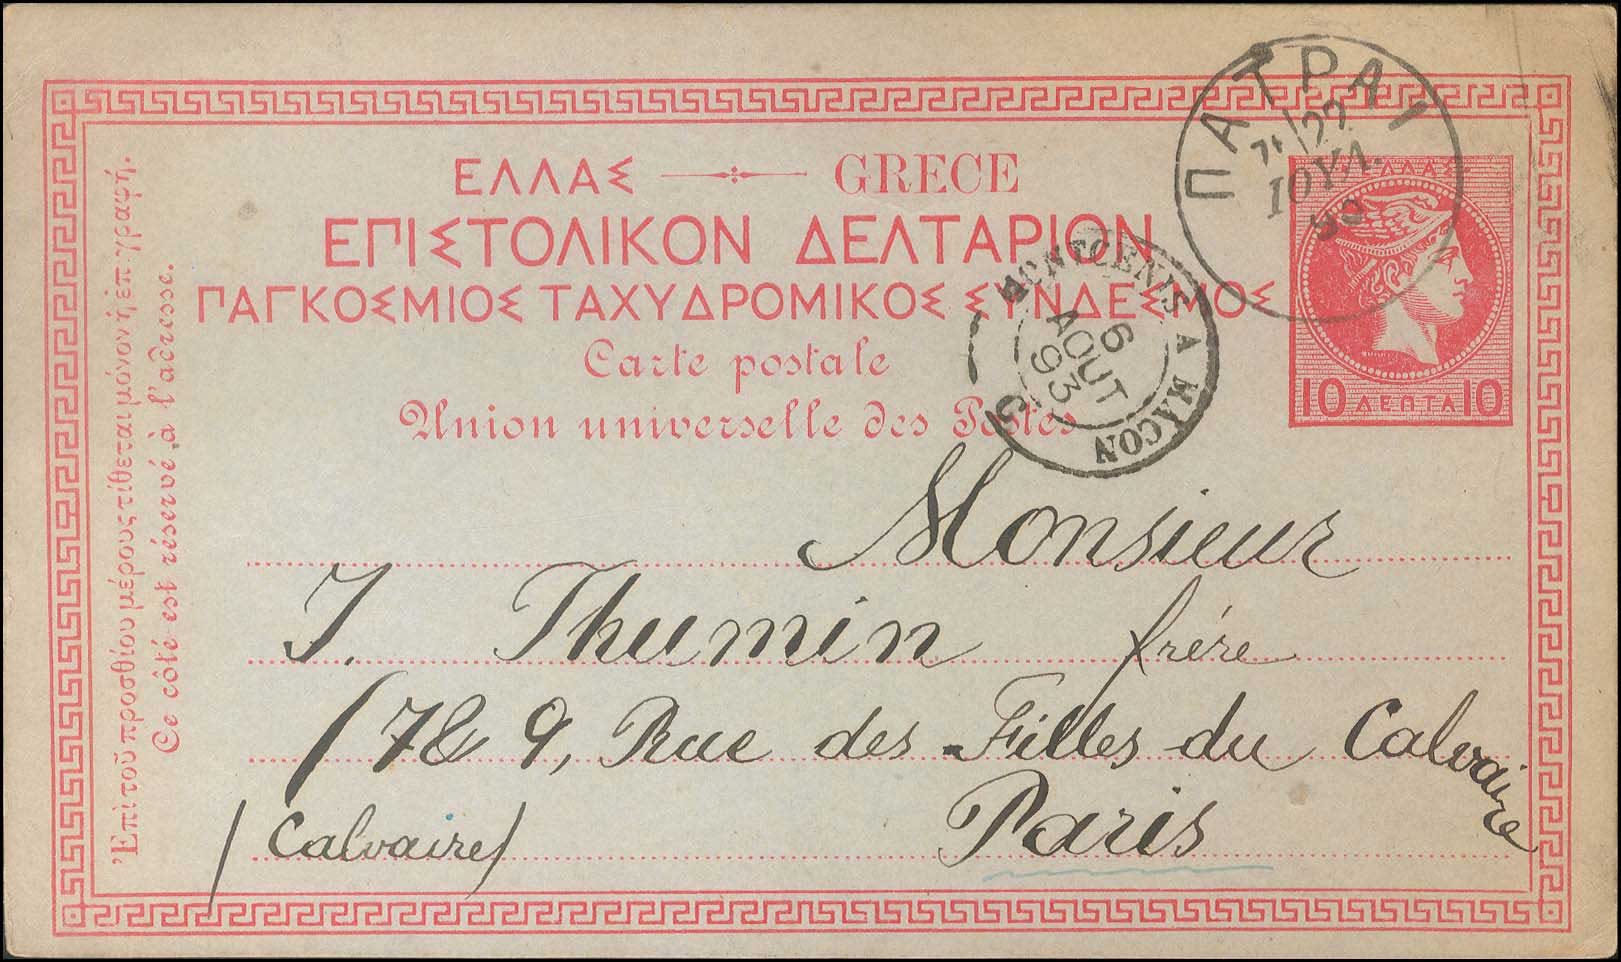 ΕΛΛΑΣ GRECE
ΕΠΙΣΤΟΛΙΚΟΝ ΔΕΛΤΑΡΙΟΝ
ΠΑΓΚΟΣΜΙΟΣ ΤΑΧΥΔΡΟΜΙΚΟΣ ΣΥΝΔΕΣΜΟΣ
Carte postale
Union universelle des Postes
Ἐπὶ τοῦ προσθίου μέρους τίθεται μόνον ἡ ἐπιγραφή.
Ce côté est réservé à l'adresse.
ΠΑΤΡΑΙ
22
ΙΟΥΛ.
ΕΛΛΑΣ
10 ΛΕΠΤΑ 10
MONTCENIS A MACON
6
AOUT
93
Monsieur
J. Thumin frère
7 & 9, Rue des Filles du Calvaire
(Calvaire)
Paris